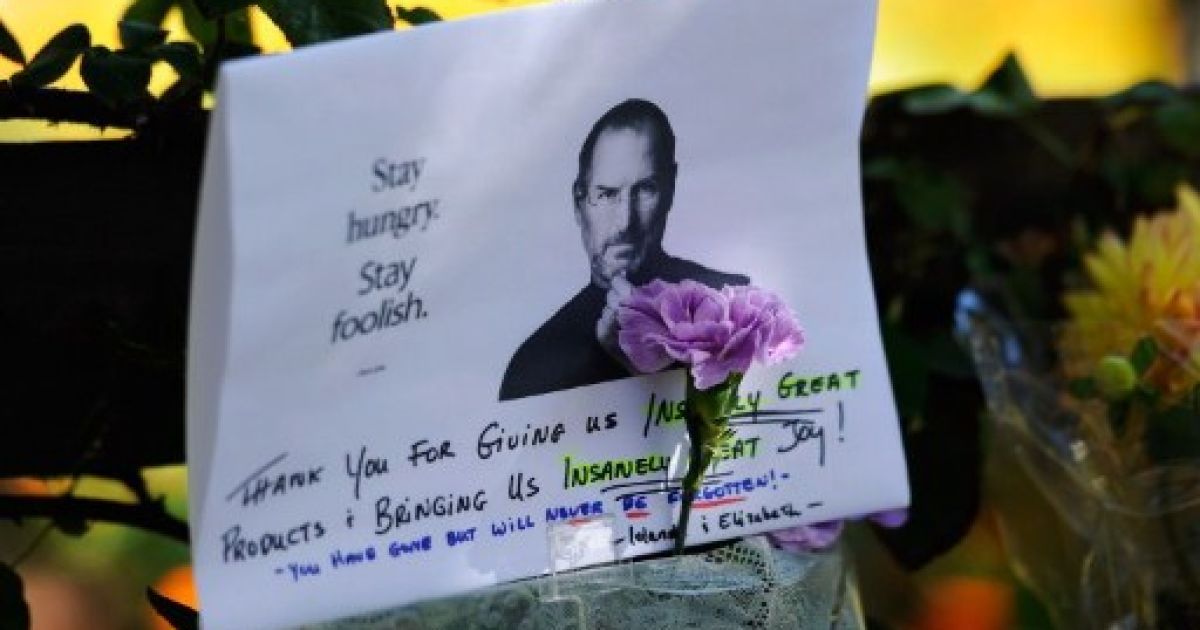 Stay
hungry.
Stay
foolish.
THANK YOU FOR GIVING US INSANELY GREAT
PRODUCTS & BRINGING US INSANELY GREAT JOY!
- YOU HAVE GONE BUT WILL NEVER BE FORGOTTEN! -
& Elizabeth -